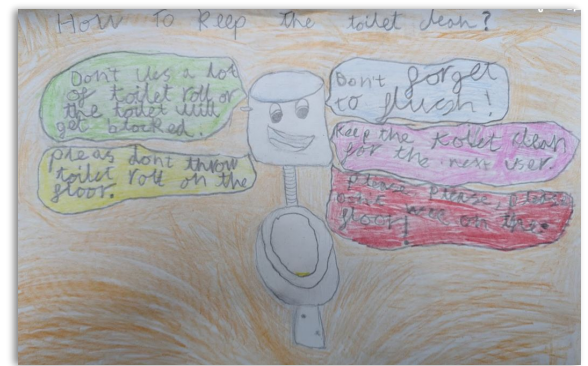 How To Keep the toilet clean?
Don't Ues a lot
of toilet roll or
the toilet will
get blocked.
Pleas dont throw
toilet roll on the
floor.
Don't forget
to flush!
Keep the toilet clean
for the next user
Please, please, please
don't wee on the
floor!